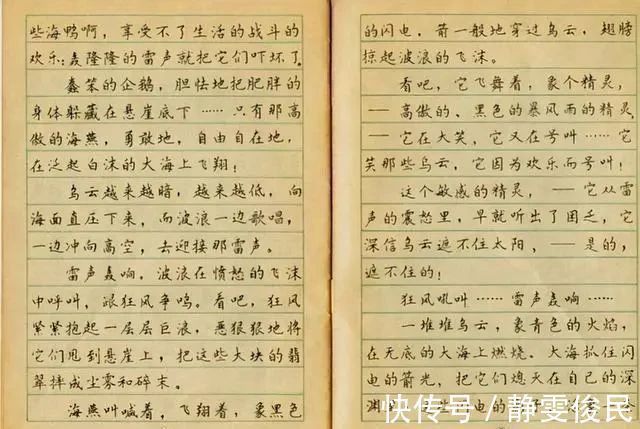 些海鸭啊，享受不了生活的战斗的
欢乐：轰隆隆的雷声就把它们吓坏了。
蠢笨的企鹅，胆怯地把肥胖的
身体躲藏在悬崖底下……只有那高
傲的海燕，勇敢地，自由自在地，
在泛起白沫的大海上飞翔！
乌云越来越暗，越来越低，向
海面直压下来，而波浪一边歌唱，
一边冲向高空，去迎接那雷声。
雷声轰响。波浪在愤怒的飞沫
中呼叫，跟狂风争鸣。看吧，狂风
紧紧抱起一层层巨浪，恶狠狠地将
它们甩到悬崖上，把这些大块的翡
翠摔成尘雾和碎末。
海燕叫喊着，飞翔着，象黑色
的闪电，箭一般地穿过乌云，翅膀
掠起波浪的飞沫。
看吧，它飞舞着，象个精灵，
——高傲的、黑色的暴风雨的精灵，
——它在大笑，它又在号叫……它
笑那些乌云，它因为欢乐而号叫！
这个敏感的精灵，——它从雷
声的震怒里，早就听出了困乏，它
深信乌云遮不住太阳，——是的，
遮不住的！
狂风吼叫……雷声轰响……
一堆堆乌云，象青色的火焰，
在无底的大海上燃烧。大海抓住闪
电的箭光，把它们熄灭在自己的深
渊
快传号／静雯俊民